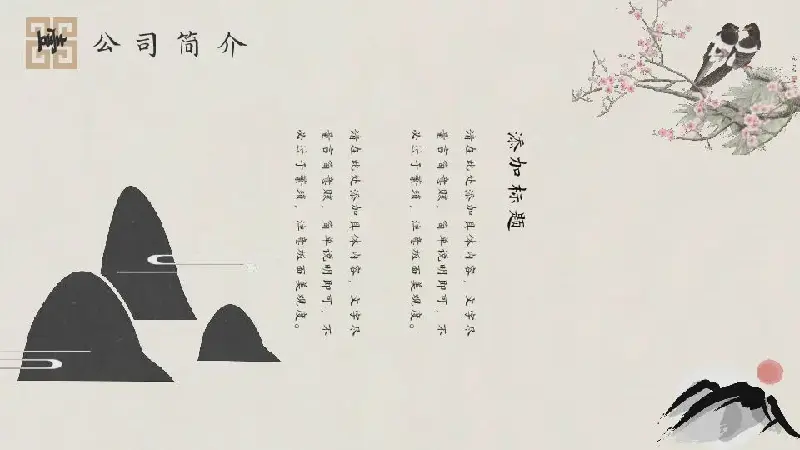 壹
公司简介
添加标题
请在此处添加具体内容,文字尽
量言简意赅,简单说明即可,不
必过于繁琐,注意版面美观度。
请在此处添加具体内容,文字尽
量言简意赅,简单说明即可,不
必过于繁琐,注意版面美观度。